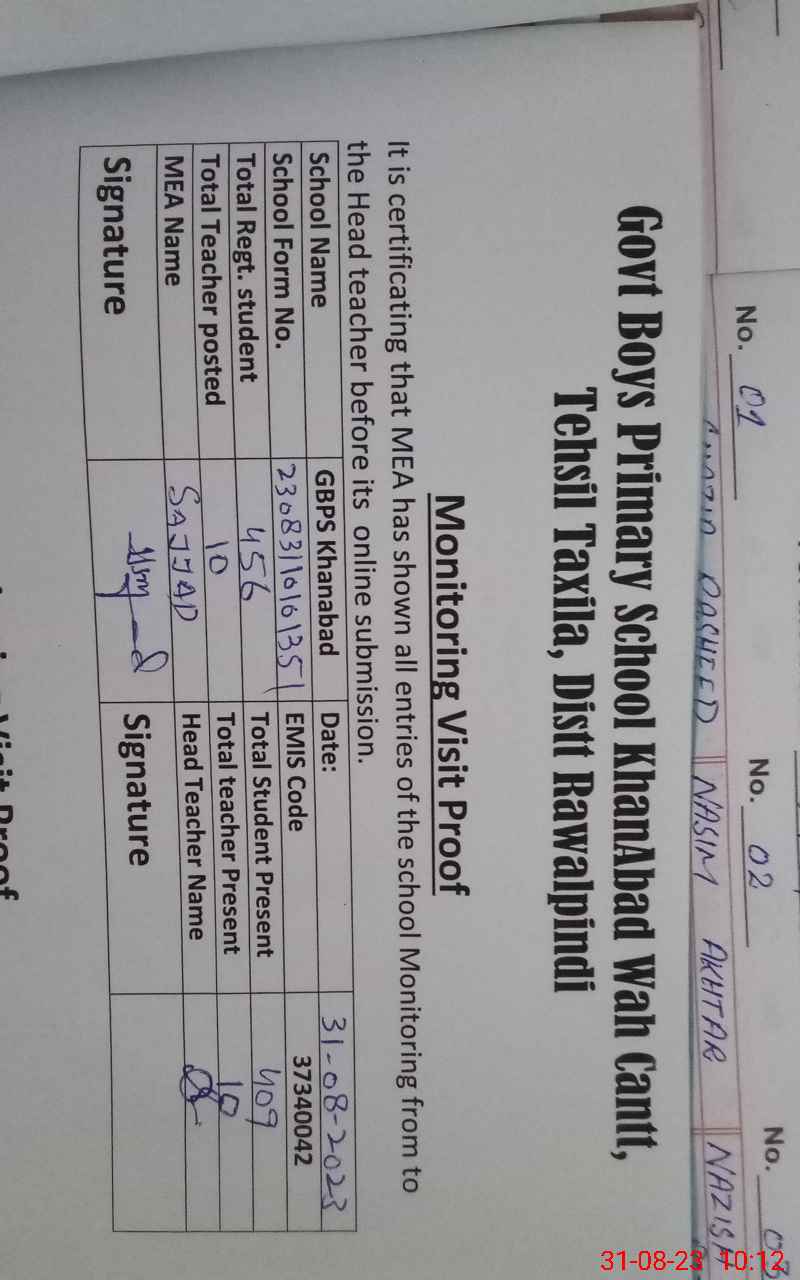 No. 01 No. 02 No. 03
RASHEED NASIM AKHTAR NAZISH
Govt Boys Primary School KhanAbad Wah Cantt,
Tehsil Taxila, Distt Rawalpindi
Monitoring Visit Proof
It is certificating that MEA has shown all entries of the school Monitoring from to
the Head teacher before its online submission.
School Name GBPS Khanabad Date: 31-08-2023
School Form No. 23083110161351 EMIS Code 37340042
Total Regt. student 456 Total Student Present 409
Total Teacher posted 10 Total teacher Present 10
MEA Name SAJJAD Head Teacher Name
Signature Signature
Visit Proof
31-08-23 10:12